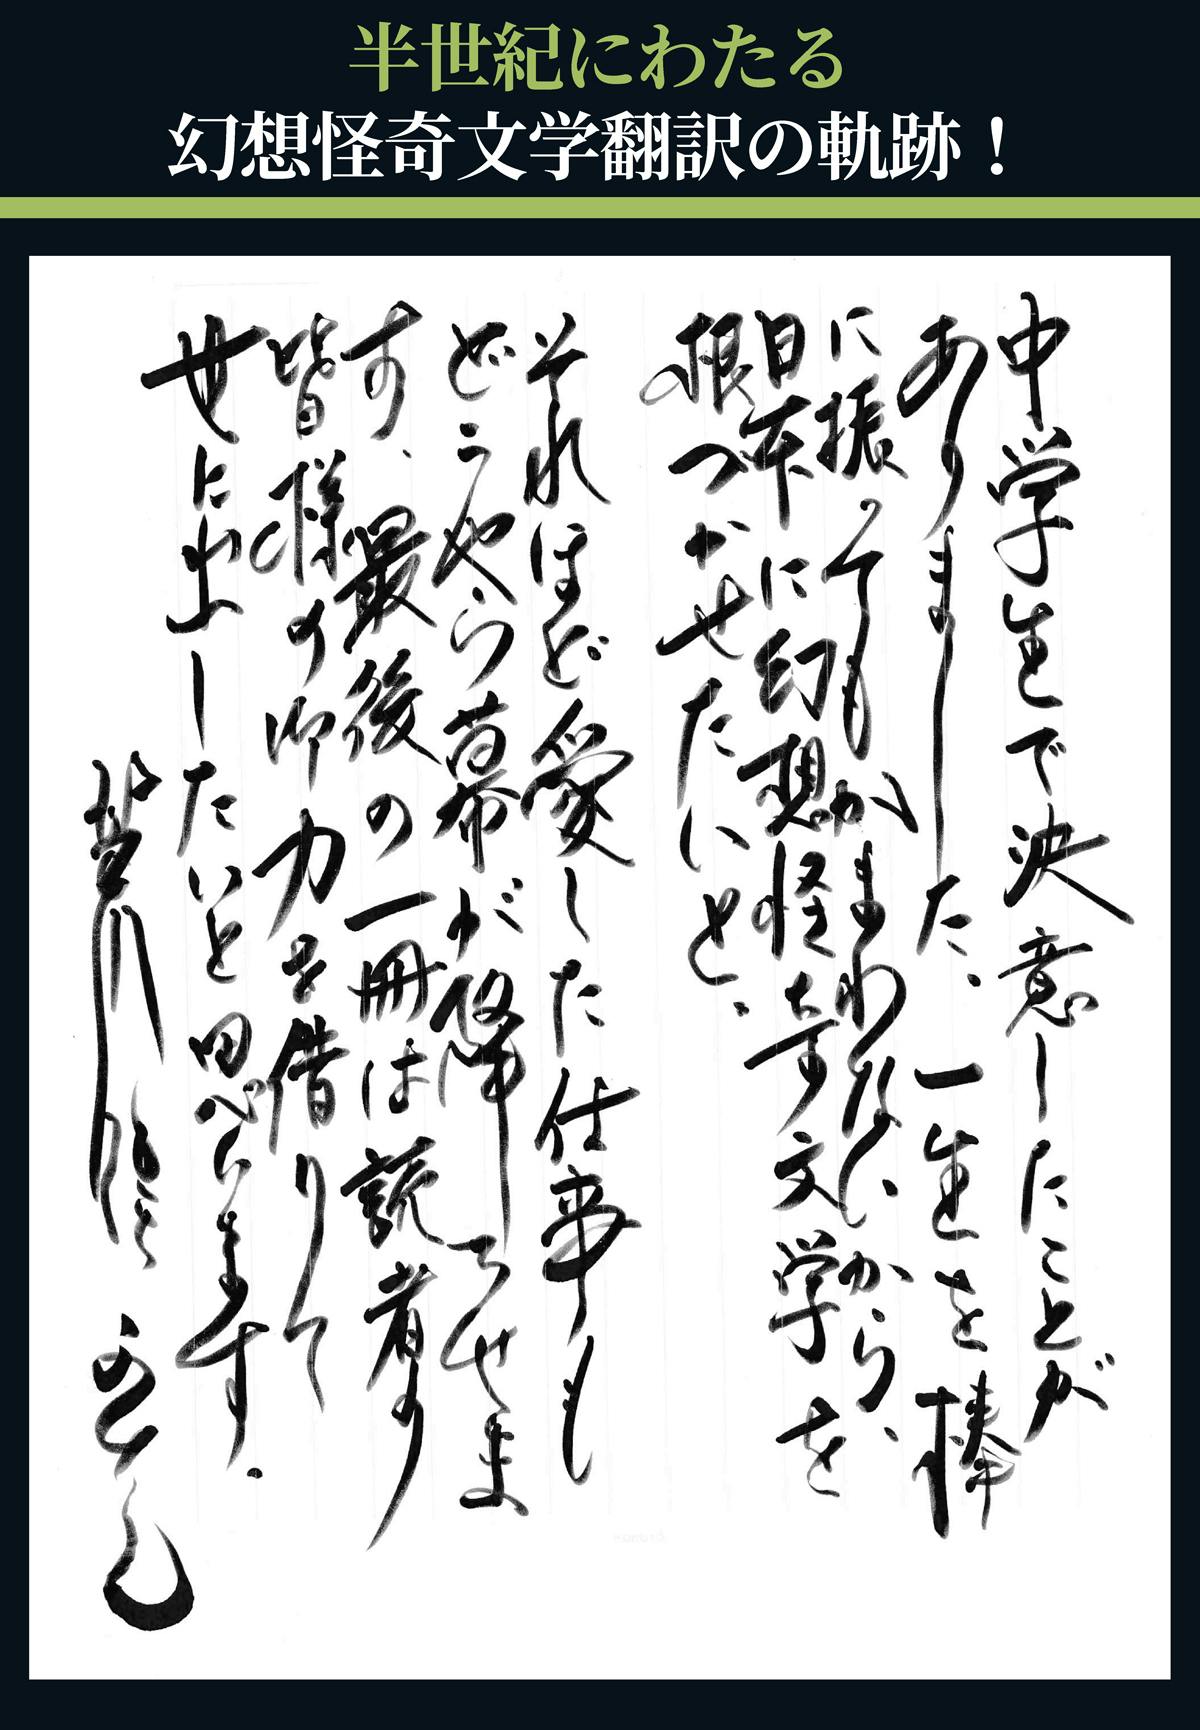 半世紀にわたる
幻想怪奇文学翻訳の軌跡！
中学生で決意したことが
ありました。一生を棒
に振ってもかまわないから、
日本に幻想怪奇文学を
根づかせたいと。
それほど愛した仕事も
どうやら幕が降ろせま
す、最後の一冊は読者の
皆様の御力を借りて
世に出したいと思います。